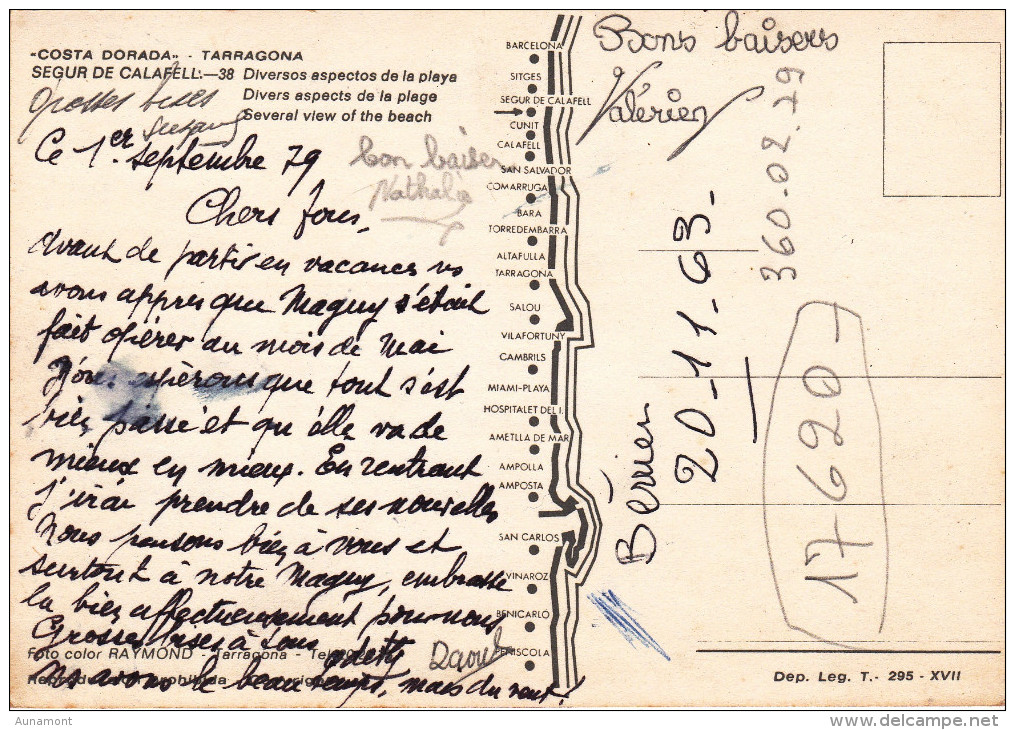 "COSTA DORADA" - TARRAGONA
SEGUR DE CALAFELL.—38 Diversos aspectos de la playa
Divers aspects de la plage
Several view of the beach
Grosses bises
Ce 1er septembre 79
bon baiser
Nathalie
Chers tous,
Avant de partir en vacances vs
avons appris que Maguy s'était
fait opérer au mois de Mai
Nous espérons que tout s'est
bien passé et qu'elle va de
mieux en mieux. En rentrant
j'irai prendre de ses nouvelles
Nous pensons bien à vous et
surtout à notre Maguy, embrasse
la bien affectueusement pour nous
Grosses bises à tous
Odette
Raoul
Foto color RAYMOND - Tarragona - Tel
Reproducción prohibida
Ns avons le beau temps, mais du vent!
BARCELONA
SITGES
SEGUR DE CALAFELL
CUNIT
CALAFELL
SAN SALVADOR
COMARRUGA
BARA
TORREDEMBARRA
ALTAFULLA
TARRAGONA
SALOU
VILAFORTUNY
CAMBRILS
MIAMI-PLAYA
HOSPITALET DEL I.
AMETLLA DE MAR
AMPOLLA
AMPOSTA
SAN CARLOS
VINAROZ
BENICARLO
PEÑISCOLA
Bons baisers
Valérien
360-02-79
20-11-63-
Bérrien
17620-
Dep. Leg. T.- 295 - XVII
Aunamont
www.delcampe.net